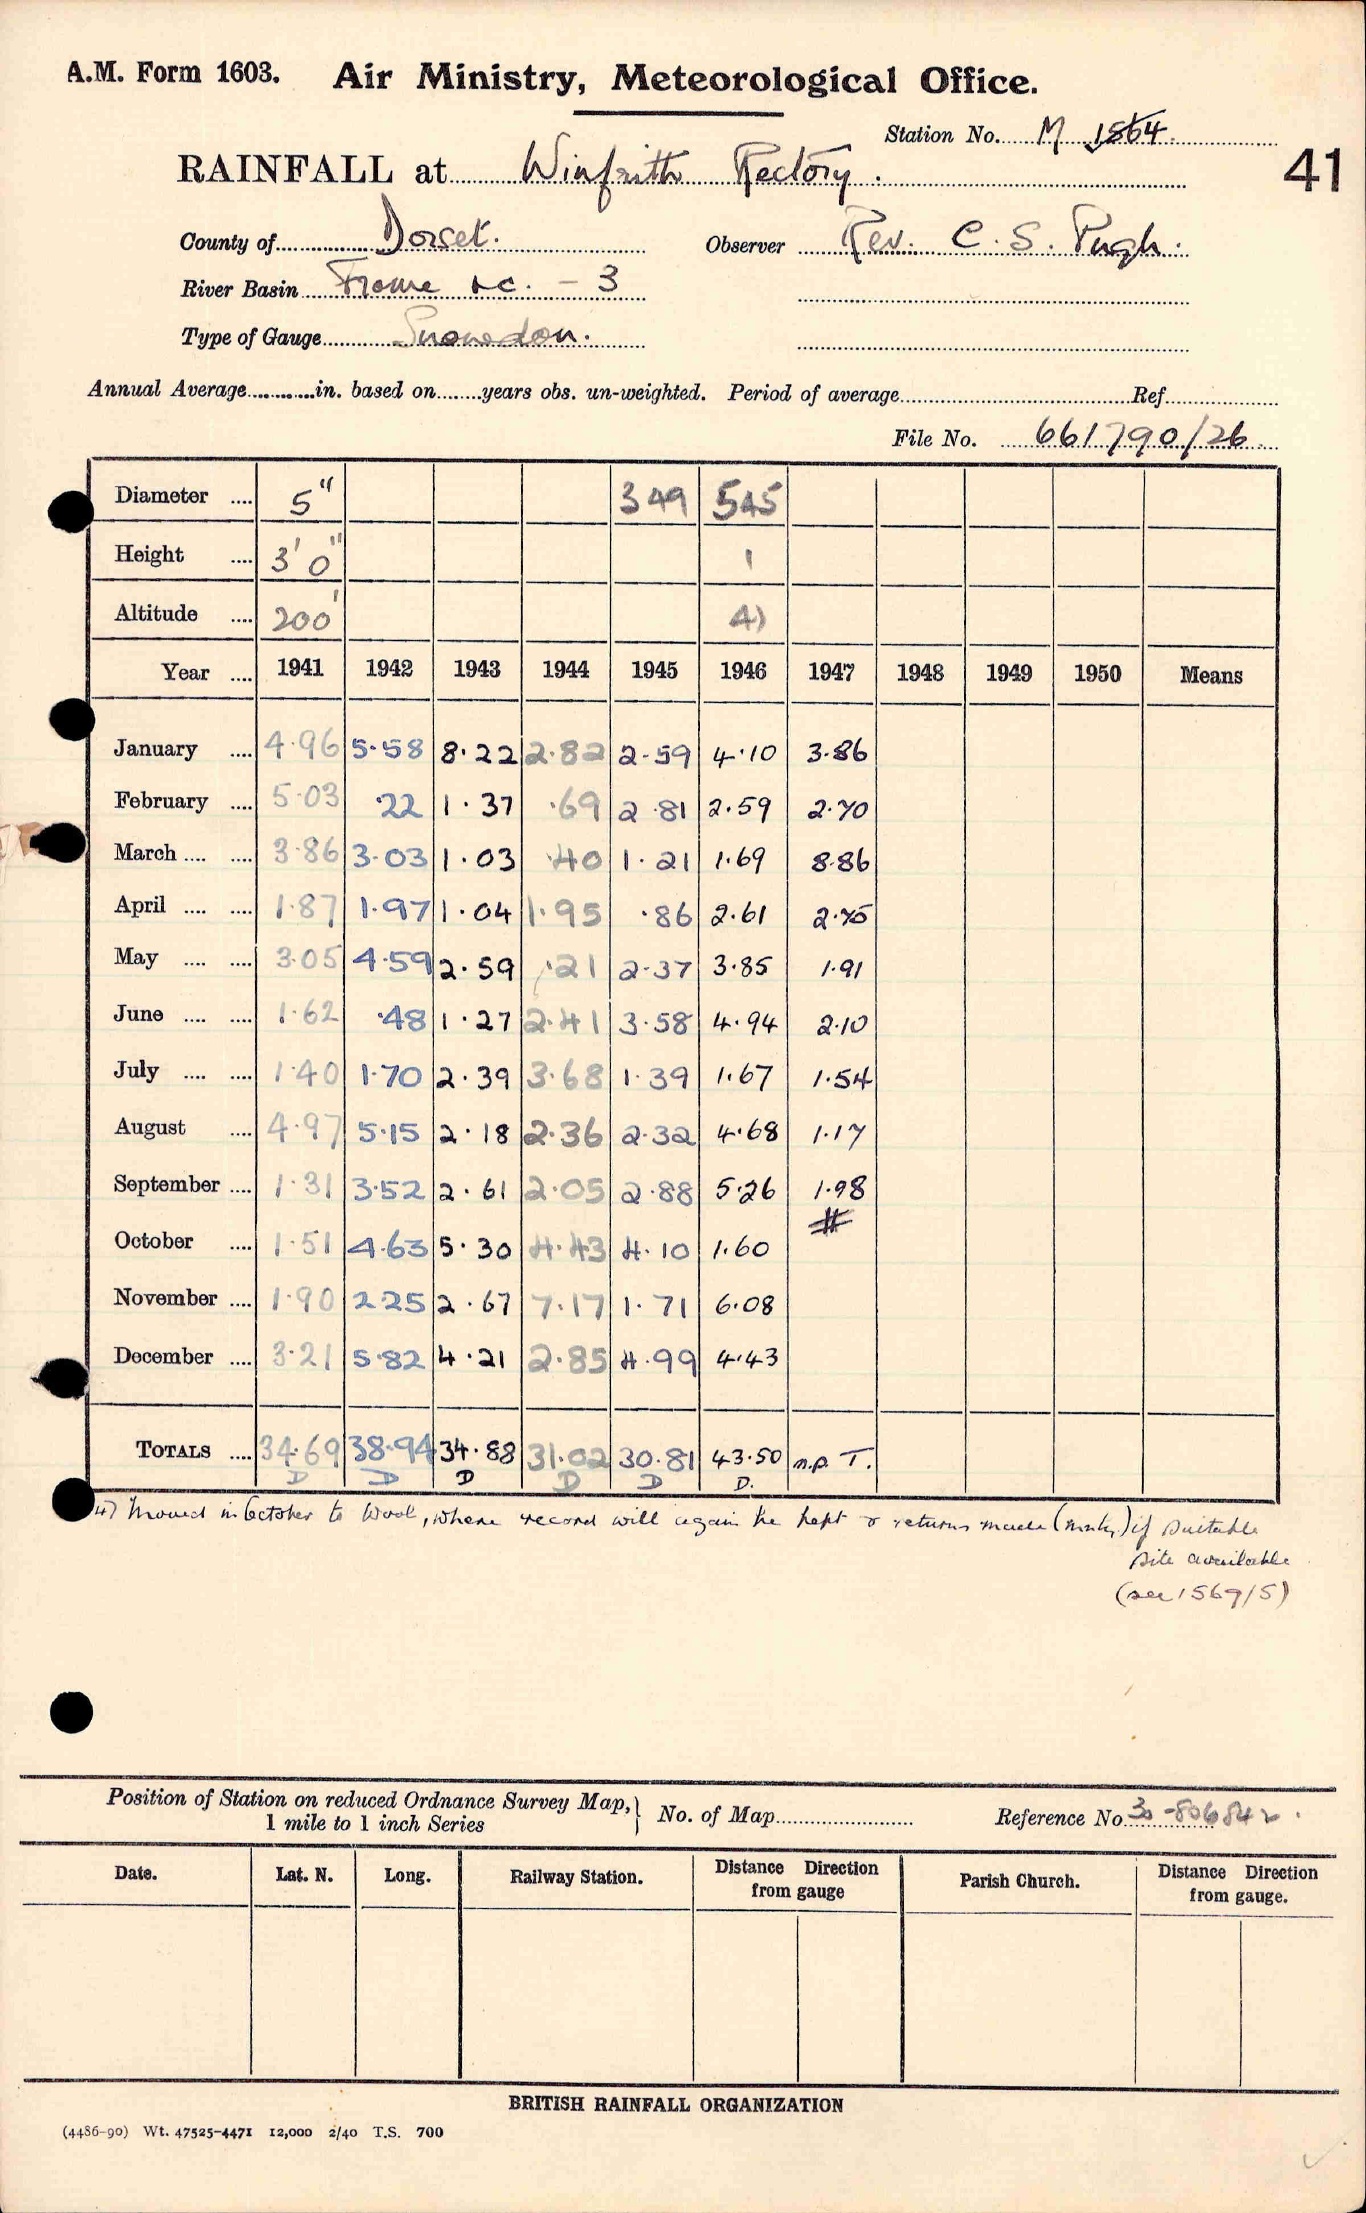 A.M. Form 1603. Air Ministry, Meteorological Office.
Station No. M 1564
41
RAINFALL at Winfrith Rectory.
County of Dorset. Observer Rev. C. S. Pugh.
River Basin Frome &c. - 3
Type of Gauge Snowdon.
Annual Average in. based on years obs. un-weighted. Period of average Ref
File No. 661790/26
Diameter 5" 349 545
Height 3' 0" 1
Altitude 200' 4)
Year 1941 1942 1943 1944 1945 1946 1947 1948 1949 1950 Means
January 4.96 5.58 8.22 2.82 2.59 4.10 3.86
February 5.03 .22 1.37 .69 2.81 2.59 2.70
March 3.86 3.03 1.03 .40 1.21 1.69 8.86
April 1.87 1.97 1.04 1.95 .86 2.61 2.75
May 3.05 4.59 2.59 .21 2.37 3.85 1.91
June 1.62 .48 1.27 2.41 3.58 4.94 2.10
July 1.40 1.70 2.39 3.68 1.39 1.67 1.54
August 4.97 5.15 2.18 2.36 2.32 4.68 1.17
September 1.31 3.52 2.61 2.05 2.88 5.26 1.98
October 1.51 4.63 5.30 4.43 4.10 1.60
November 1.90 2.25 2.67 7.17 1.71 6.08
December 3.21 5.82 4.21 2.85 4.99 4.43
TOTALS 34.69 38.94 34.88 31.02 30.81 43.50 n.p. T.
D D D D D D.
47 Moved in October to Wool, where record will again be kept & returns made (mnthy) if suitable
site available
(see 1569/5)
Position of Station on reduced Ordnance Survey Map,
1 mile to 1 inch Series
No. of Map Reference No 30-806842.
Date. Lat. N. Long. Railway Station. Distance Direction from gauge Parish Church. Distance Direction from gauge.
BRITISH RAINFALL ORGANIZATION
(4486-90) Wt. 47525-4471 12,000 2/40 T.S. 700